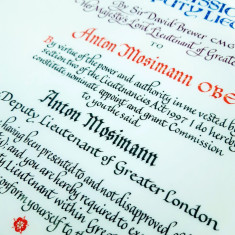 SSION
PUTY LIEUTE
By Sir David Brewer CMG
Her Majesty's Lord Lieutenant of Greater
TO
Anton Mosimann OBE
By virtue of the power and authority in me vested by
section two of the Lieutenancies Act, 1997 I do hereby
constitute nominate appoint and grant Commission
you the said
Anton Mosimann
Deputy Lieutenant of Greater London
having been presented to and not disapproved of
and you are hereby required to ex
ty Lieutenant within Greater
conform yourself to th